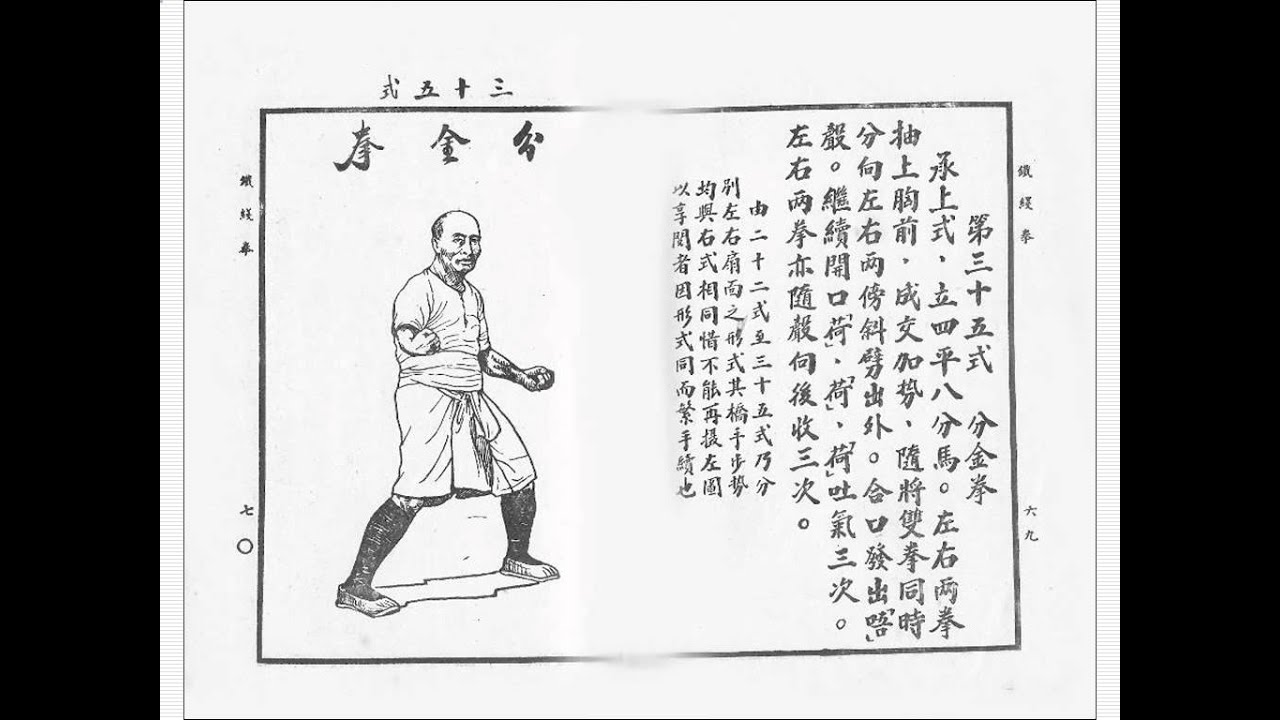 鐵綫拳
六九
第三十五式 分金拳
承上式、立四平八分馬。左右两拳
抽上胸前、成交加势、隨將雙拳同時
分向左右两傍斜劈出外。合口發出「唔」
聲。繼續開口「荷」、「荷」、「荷」吐氣三次。
左右两拳亦隨聲向後收三次。
由二十二式至三十五式乃分
別左右扇面之形式其橋手步势
均與右式相同惜不能再摄左圖
以享閱者因形式同而繁手續也
三十五式
分金拳
鐵綫拳
七〇